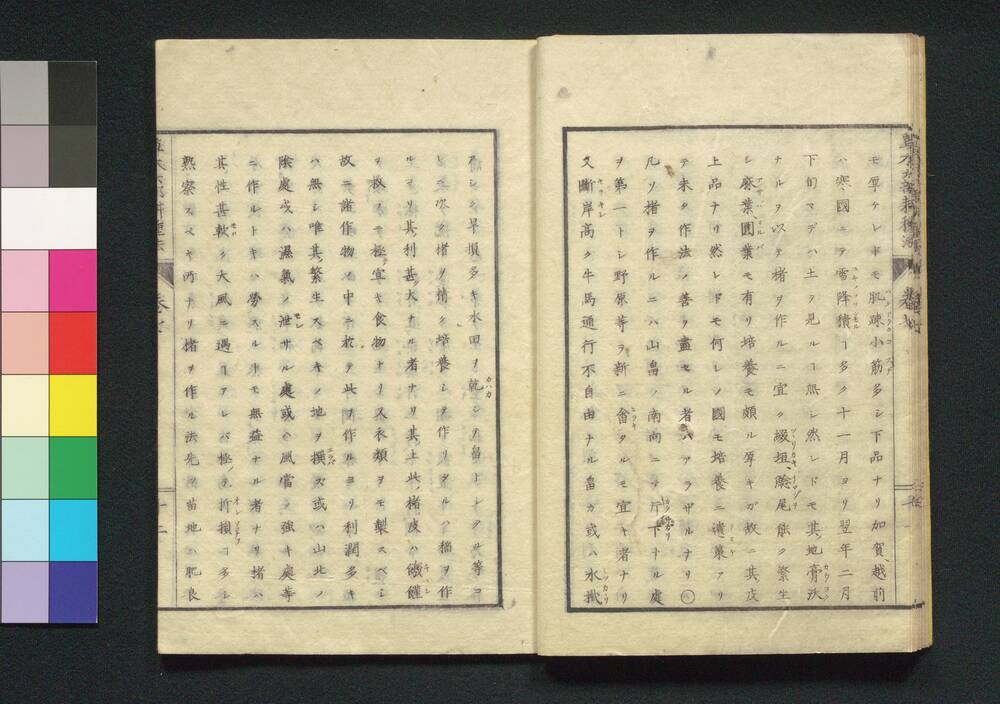 モ厚ケレドモ肌疎小筋多シ下品ナリ加賀越前
ハ寒國ニテ雪降積ヿ多ク十一月ヨリ翌年二月
下旬マデハ土ヲ見ルヿ無シ然レドモ其地膏沃
ナルヲ以テ楮ヲ作ルニ宜ク綴垣
尾能ク繁生
シ麻葉圓葉モ有リ培養モ頗ル厚キガ故ニ其皮
上品ナリ然レドモ何レノ國モ培養ニ遺策アリ
テ未タ作法ノ善ヲ盡セル者ハアラザルナリ
凡ソ楮ヲ作ルニハ山畠ノ南向ニテ片下ナル處
ヲ第一トシ野原等ヲ新ニ畬タルモ宜キ者ナリ
又斷岸高ク牛馬通行不自由ナル畠カ或ハ水
シ旱損多キ水田ヲ乾シテ畠トシタル等コ
楮ヲ精ク培養シテ作リタルハ稲ヲ作
ルヨリ其利甚大ナル者ナリ其上此楮皮ハ饑饉
ヲ救フニ極宜キ食物トナリ又衣類ヲモ製スベシ
故ニ諸作物ノ中ニ於テ此ヲ作ルヨリ利潤多キ
ハ無シ唯其繁生スベキノ地ヲ撰ズ或ハ山北ノ
陰處或ハ濕氣ノ泄サル處或ハ風當ノ強キ處等
ニ作ルトキハ勞スルモ無益ナル者ナリ楮ハ
其性甚軟ク大風ニ遇ヿアレバ極テ折損ヿ多シ
熟察スベキ所ナリ楮ヲ作ル法先ヅ苗地ハ肥良